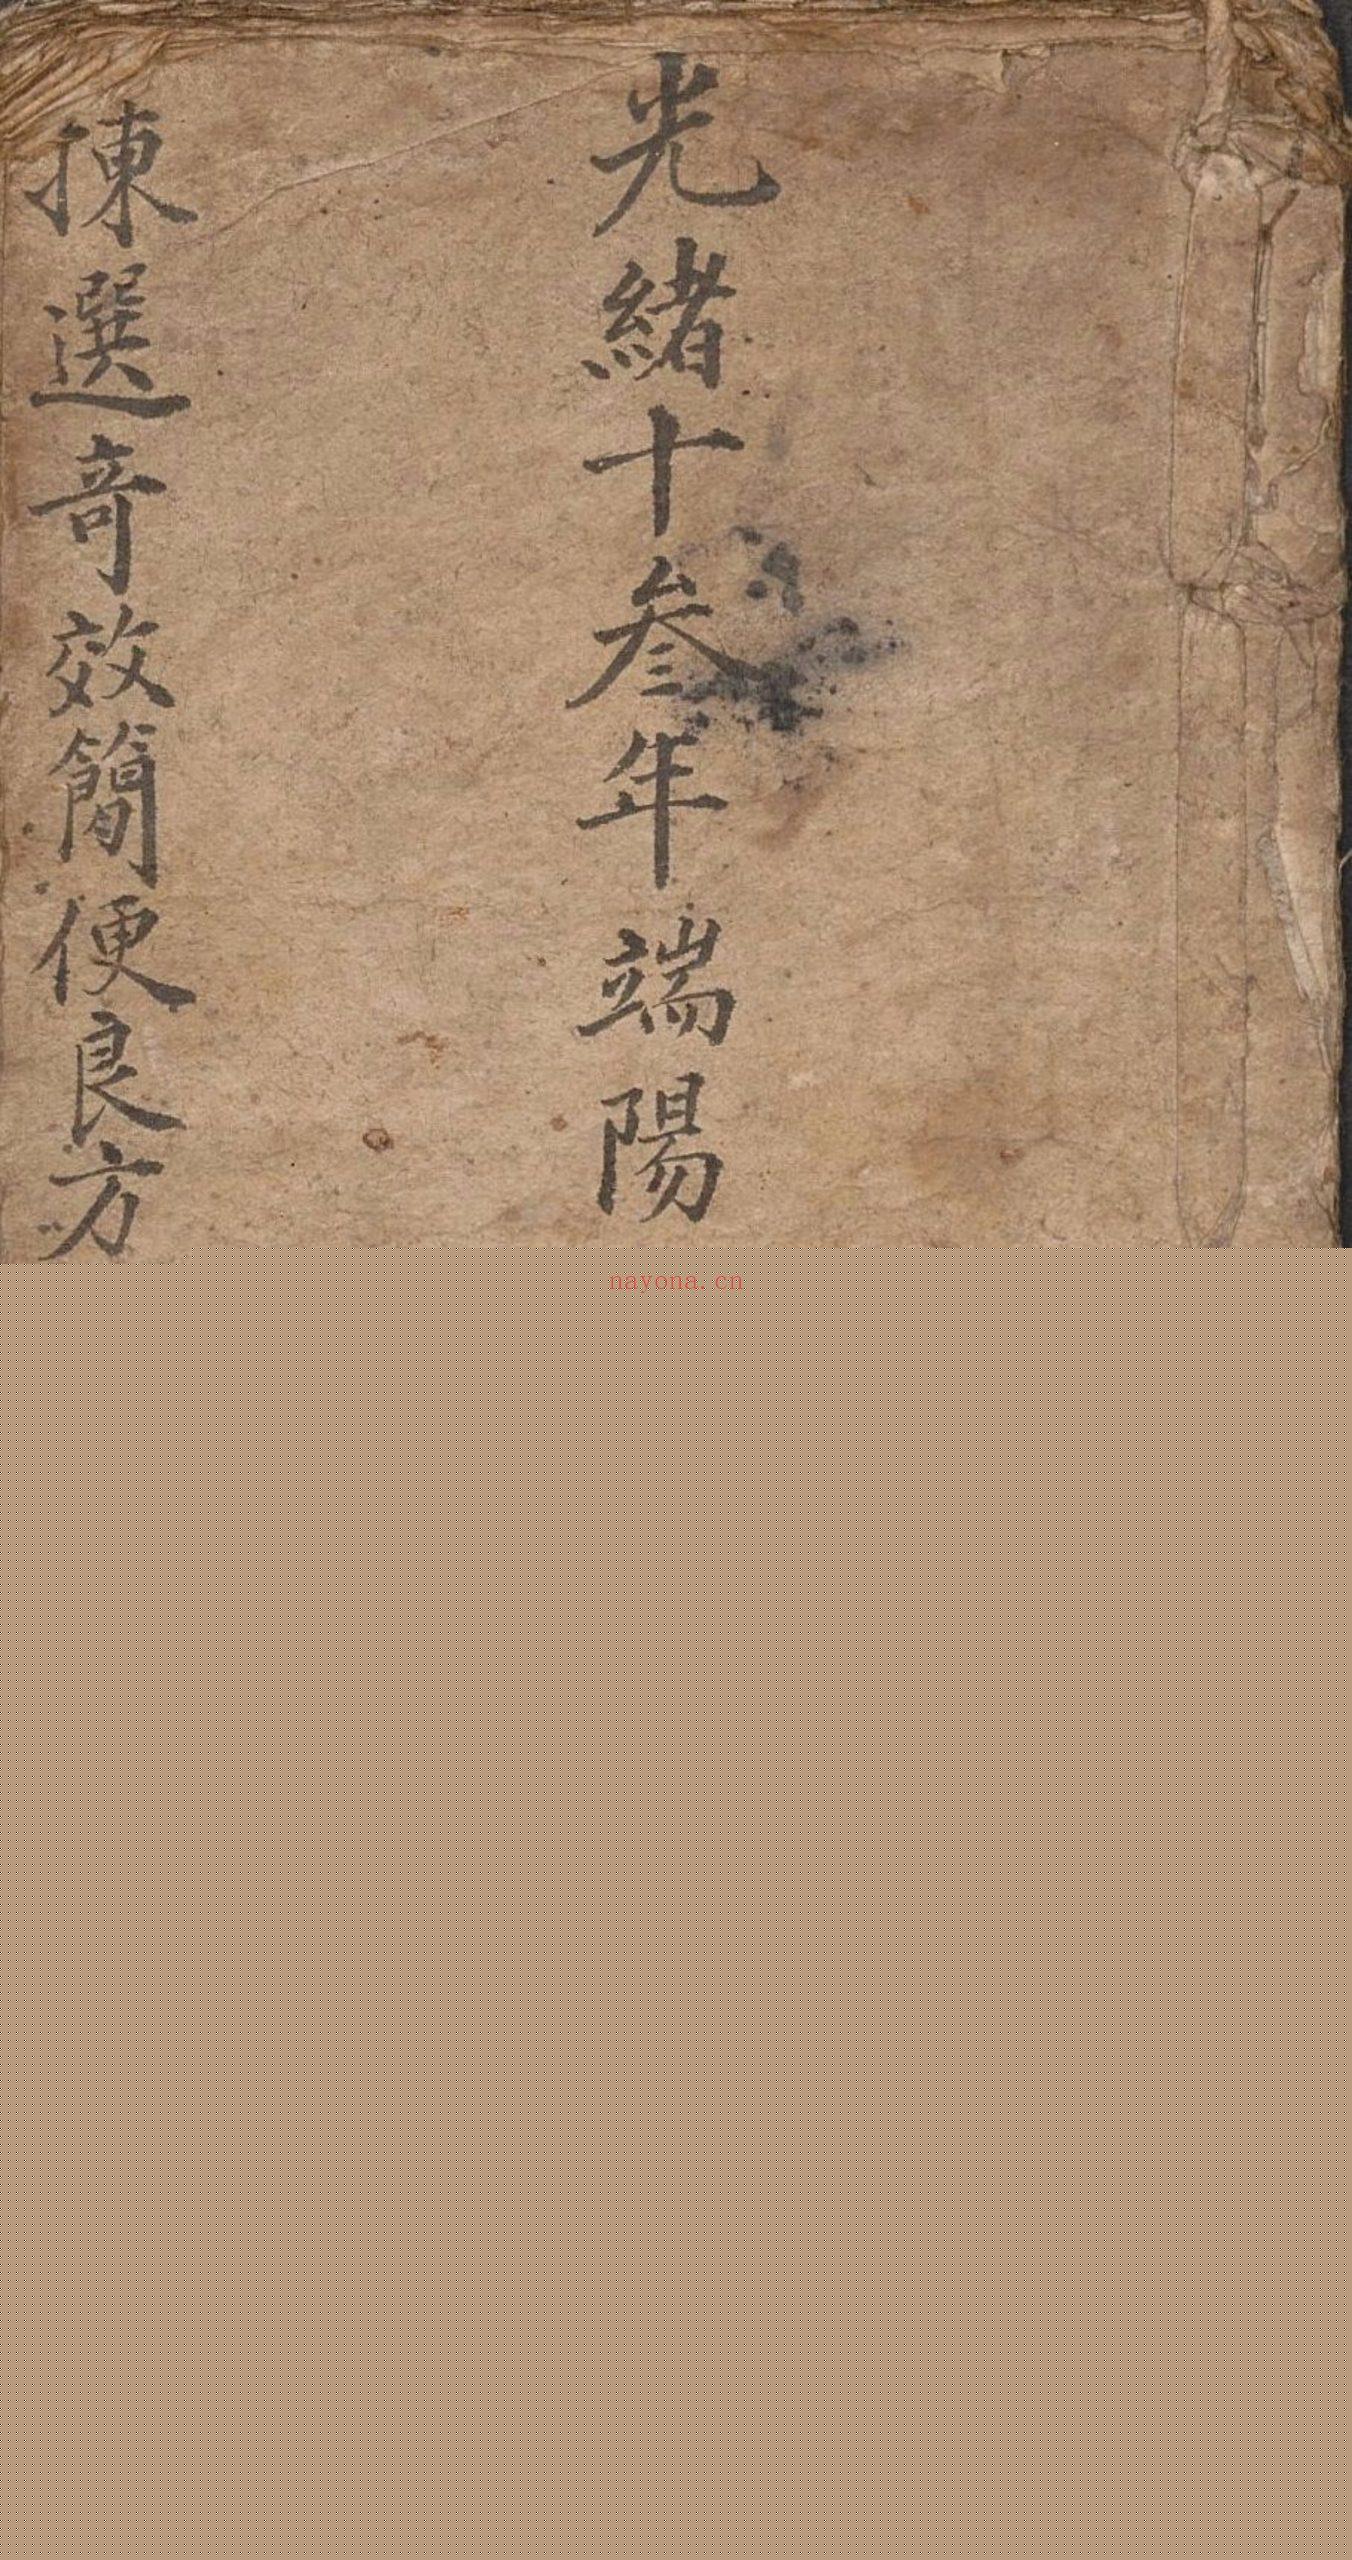 光緒十叄年端陽
揀選奇效簡便良方
nayona.cn